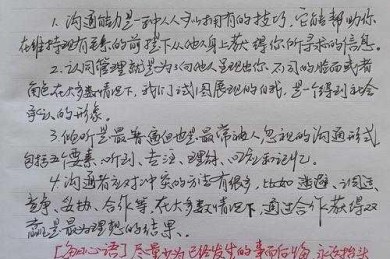 1. 沟通能力是一种人人必须拥有的技巧,它能帮助你
在维持现有关系的前提下从他人身上获得你所寻求的信息。
2. 认同管理就是为了向他人呈现出你不同的脸面或者
角色在大多数情况下,我们试图展现的自我,是一个得到社会
承认的形象。
3. 倾听是最普通但也是最常被人忽视的沟通形式,
包括五个要素:听到、专注、理解、回应和记忆。
4. 沟通者应对冲突的方法有很多,比如逃避、调适、
竞争、妥协、合作等,在大多数情况下,通过合作获得双
赢是最为理想的结果。
[每日心语] 尽量少为已经发生的事而后悔 永远抬头